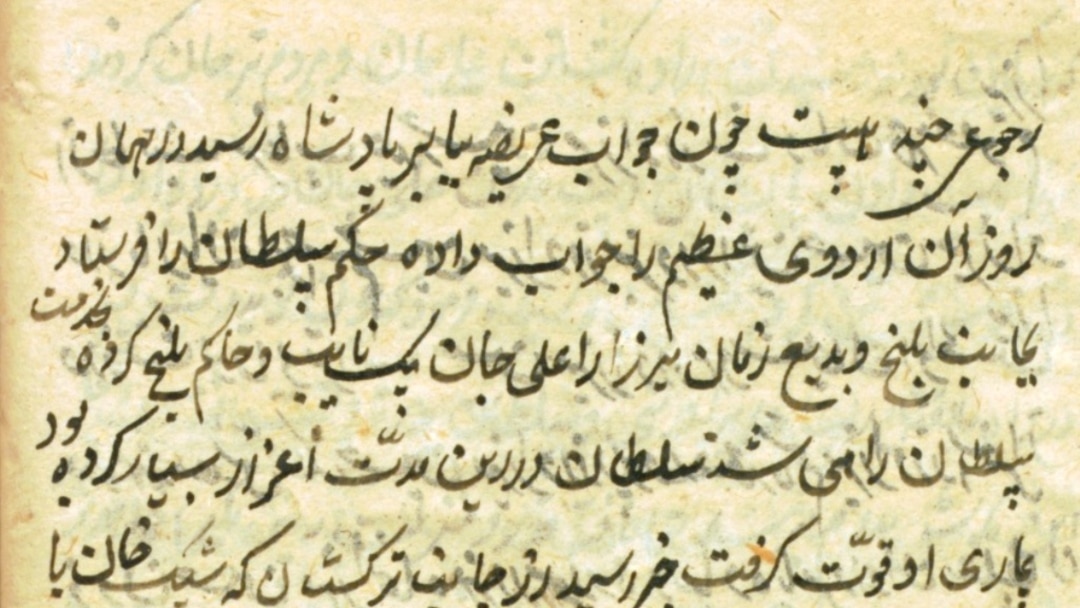 رجوعی چند نیست چون جواب عریضه بیا بر پادشاه رسید در همان
روز آن اردوی عظیم را جواب داده حکم سلطان را فرستاد
بجانب بلخ و بدیع زمان میرزا را علی جان بیک نایب و حاکم بلخ کرده بخدمت
سلطان راهی شد سلطان درین مدت اعزاز بسیار کرده بود
باری او قوت گرفت خبر رسید از جانب ترکستان که شیبک خان با